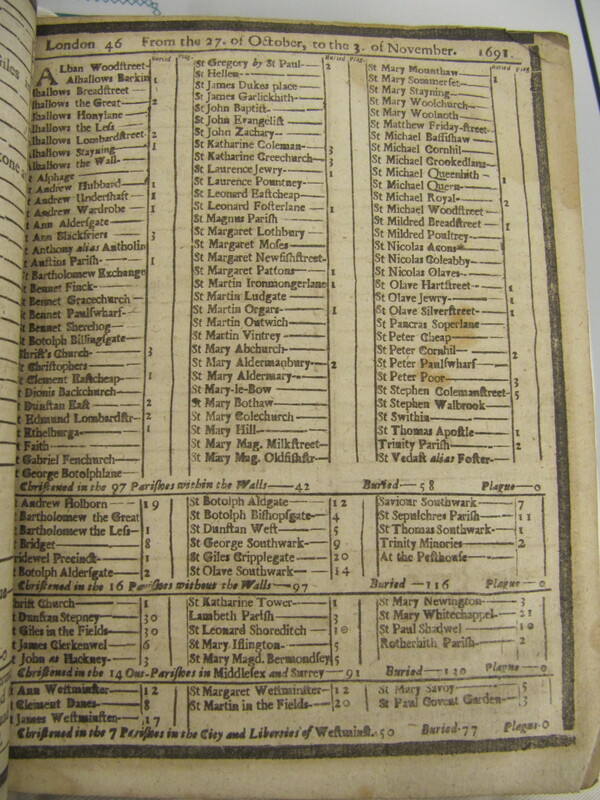 London 46 From the 27. of October, to the 3. of November. 1691.
Buried Plag.
ALban Woodstreet-
Alhallows Barkin 1
lhallows Breadstreet
lhallows the Great 2
lhallows Honylane
lhallows the Less
lhallows Lombardstreet- 2
lhallows Stayning 1
lhallows the Wall-
t Alphage
t Andrew Hubbard 1
t Andrew Undershaft 1
t Andrew Wardrobe 1
t Ann Aldersgate
t Ann Blackfriers 3
t Anthony alias Antholin
t Austins Parish- 1
t Bartholomew Exchange
t Bennet Finck-
t Bennet Gracechurch
t Bennet Paulswharf-
t Bennet Sherehog
t Botolph Billingsgate
hrist's Church- 3
t Christophers
t Clement Eastcheap- 1
t Dionis Backchurch
t Dunstan East 2
t Edmund Lombardstr- 2
t Ethelburga 1
t Faith
t Gabriel Fenchurch
t George Botolphlane
Buried Plag.
St Gregory by St Paul 2
St Hellen
St James Dukes place
St James Garlickhith
St John Baptist
St John Evangelist
St John Zachary
St Katharine Coleman- 3
St Katharine Creechurch- 3
St Laurence Jewry 1
St Laurence Pountney-
St Leonard Eastcheap
St Leonard Fosterlane 1
St Magnus Parish
St Margaret Lothbury
St Margaret Moses
St Margaret Newfishstreet-
St Margaret Pattons 1
St Martin Ironmongerlane 1
St Martin Ludgate
St Martin Orgars 1
St Martin Outwich
St Martin Vintrey
St Mary Abchurch
St Mary Aldermanbury- 2
St Mary Aldermary
St Mary-le-Bow
St Mary Bothaw
St Mary Colechurch
St Mary Hill
St Mary Mag. Milkstreet-
St Mary Mag. Oldfishstr-
Buried Plag
St Mary Mounthaw
St Mary Sommerset- 1
St Mary Stayning
St Mary Woolchurch
St Mary Woolnoth
St Matthew Friday-street-
St Michael Bassishaw
St Michael Cornhil
St Michael Crookedlane
St Michael Queenhith 1
St Michael Quern
St Michael Royal 2
St Michael Woodstreet
St Mildred Breadstreet 1
St Mildred Poultrey
St Nicolas Acons
St Nicolas Coleabby
St Nicolas Olaves
St Olave Hartstreet 1
St Olave Jewry 1
St Olave Silverstreet 1
St Pancras Soperlane
St Peter Cheap
St Peter Cornhil 2
St Peter Paulswharf
St Peter Poor 3
St Stephen Colemanstreet- 5
St Stephen Walbrook
St Swithin
St Thomas Apostle 1
Trinity Parish 2
St Vedast alias Foster-
Christned in the 97 Parishes within the Walls 42 Buried 58 Plague 0
Andrew Holborn 19
Bartholomew the Great
Bartholomew the Less 1
Bridget 8
ridewel Precinct- 1
Botolph Aldersgate- 2
St Botolph Aldgate 12
St Botolph Bishopsgate 4
St Dunstan West 5
St George Southwark 9
St Giles Cripplegate 20
St Olave Southwark 14
Saviour Southwark 7
St Sepulchres Parish 11
St Thomas Southwark- 1
Trinity Minories 2
At the Pesthouse
Christned in the 16 Parishes without the Walls 97 Buried 116 Plague 0
hrist Church 1
t Dunstan Stepney 30
t Giles in the Fields 30
t James Clerkenwel 6
t John at Hackney 3
St Katharine Tower 1
Lambeth Parish 3
St Leonard Shoreditch 10
St Mary Islington 5
St Mary Magd. Bermondsey 5
St Mary Newington 3
St Mary Whitechappel 21
St Paul Shadwel 10
Rotherhith Parish 2
Christned in the 14 Out-Parishes in Middlesex and Surrey 91 Buried 130 Plague 0
t Ann Westminster 12
t Clement Danes 8
t James Westminster 17
St Margaret Westminster 12
St Martin in the Fields 20
St Mary Savoy 5
St Paul Covent Garden 3
Christned in the 7 Parishes in the City and Liberties of Westminst. 50 Buried 77 Plague 0